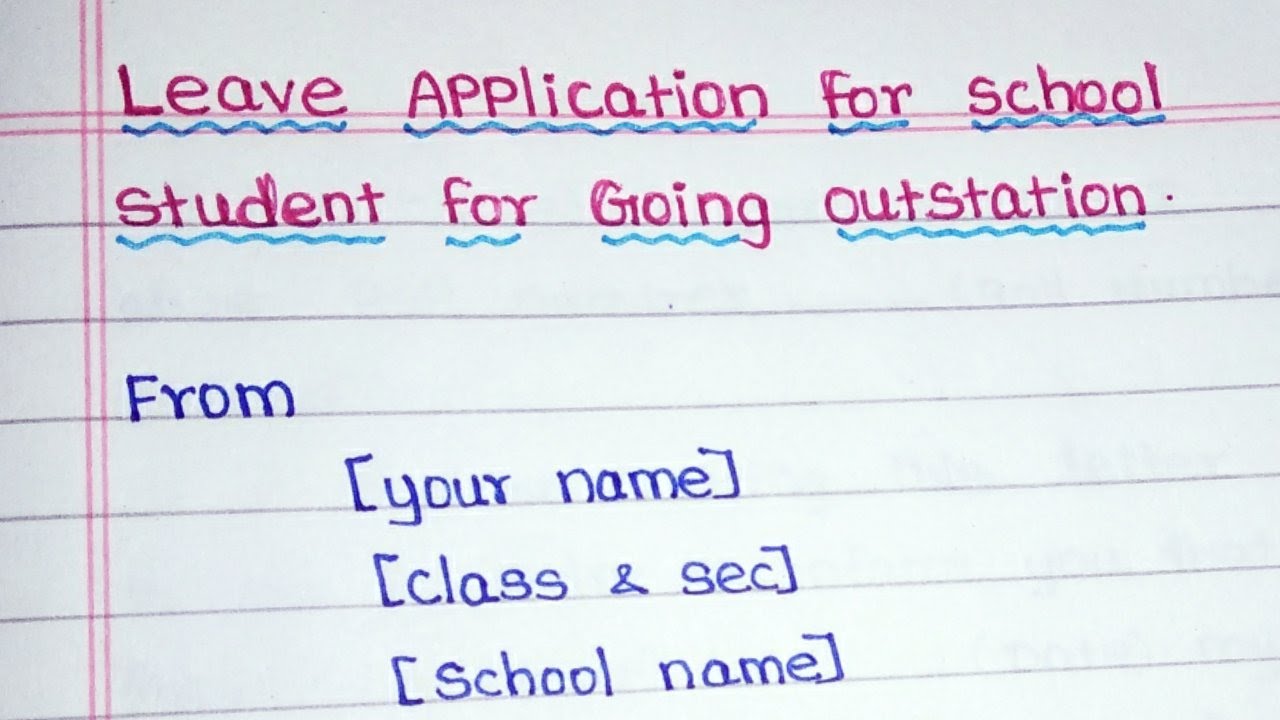 Leave Application for school
student for Going outstation.
From
[your name]
[class & sec]
[school name]